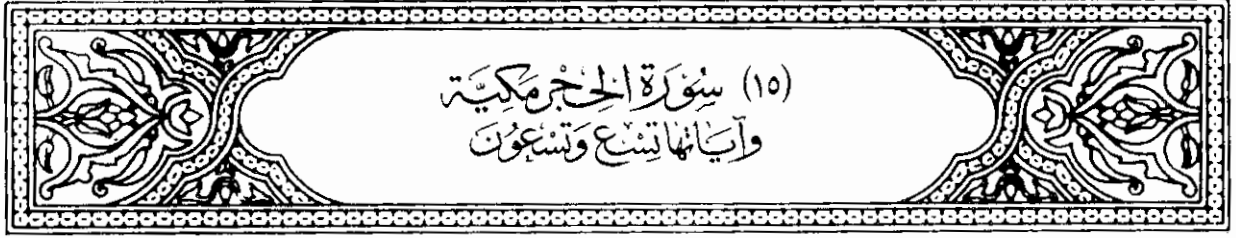 (١٥) سُوْرَة الحِجْر مَكِيَّة
وآيَاتهَا تِسْع وَتسْعُوْنَ